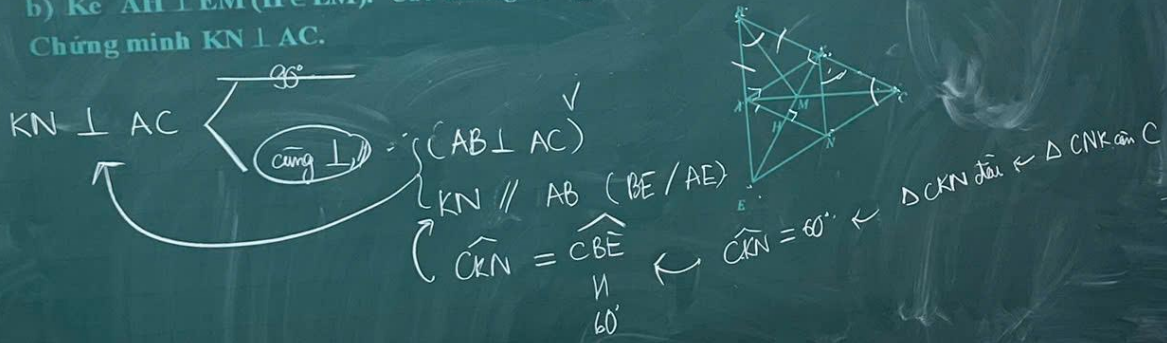 b) Kẻ AH ⊥ EM (H ∈ EM).
Chứng minh KN ⊥ AC.
90°
KN ⊥ AC
cùng ⊥, //
(AB ⊥ AC) ✓
KN // AB (BE/AE)
CKN = CBE
60°
CKN = 60° ← Δ CKN đều ← Δ CNK cân C
B
K
A
M
C
H
N
E